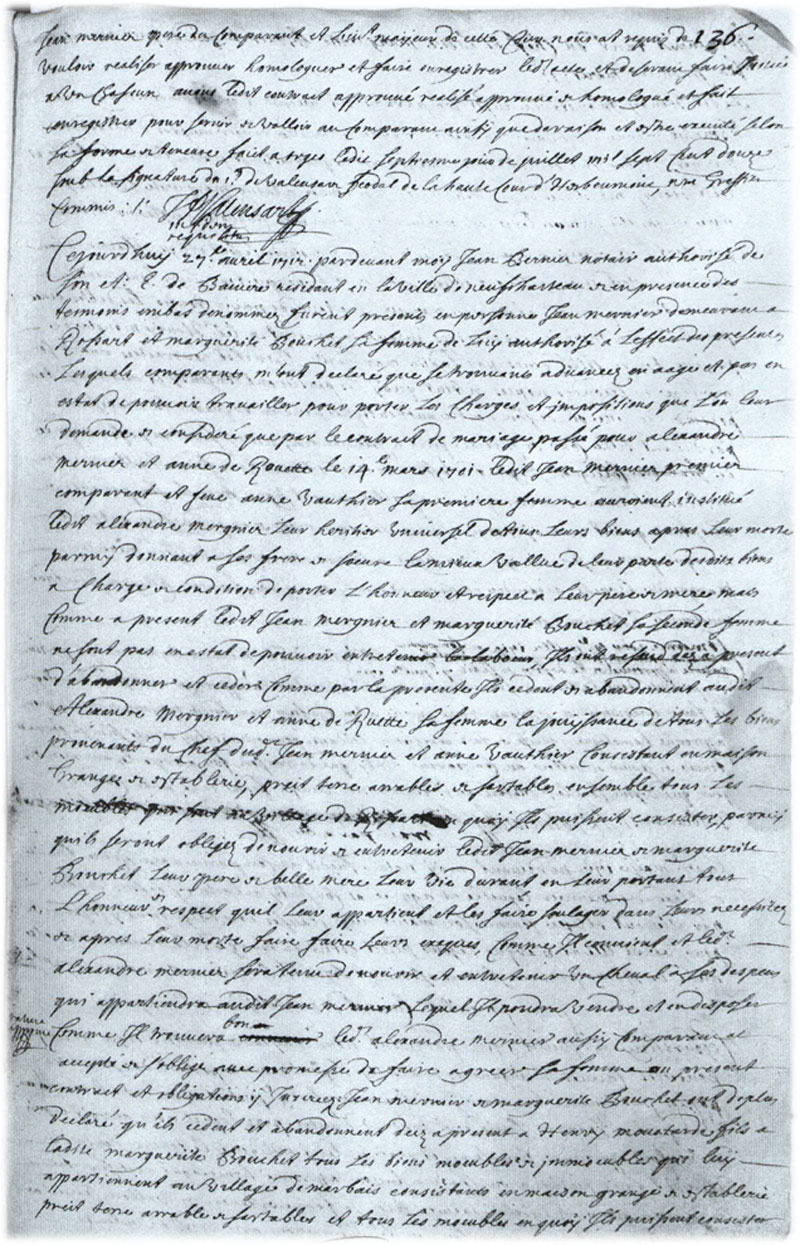 Jean mernier pere du Comparant et Lieut. majeur de cette Cour nous at requis de 136.
vouloir realiser approuver homologuer et faire enregistrer led. actes et desirant faire Justice
a un Chascun avons ledit contract approuvé realisé approuvé & homologué et fait
enregistrer pour servir & valloir au Comparant ainsy que de raison et estre executé selon
sa forme & teneur fait a ledit septiesme jour de juillet mil sept Cent douze
soub la signature du Sr. de Valensart feodal de la haute Cour d'Herbeumont, Greffier
Commis : Sr.
Cejourd'huy 27e. avril 1712 pardevant moy Jean Bernier notair authorisé de
son A. E. de Baviere residant en la ville de neufchasteau & en presence des
temoins embas denommez furent presents en personne Jean mernier demeurant a
Rossart et marguerite Bouchet sa femme de luy authorisé à l'effect des presentes
Lesquels comparants m'ont declaré que se trouvants advancez en aage et pas en
estat de pouvoir travailler pour porter les Charges et impositions que l'on leur
demande & consideré que par le contract de mariage passé pour alexandre
mernier et anne de Rouette le 14e. mars 1701. ledit Jean mernier premier
comparant et feue anne Vauthier sa premiere femme auroient institué
ledit alexandre mergnier leur heritier universel de tous leurs biens apres leur morte
parmy donnant a ses frere & soeurs la mieux vallue de leur parte desdits biens
a Charge & condition de porter l'honneur et respect a leur pere & mere mais
Comme a present ledit Jean mergnier et marguerite Bouchet sa seconde femme
ne sont pas en estat de pouvoir entretenir le labeur, Ils ont resoud des a present
d'abandonner et ceder Comme par la presente Ils cedent & abandonnent audit
Alexandre mergnier et anne de Ruette sa femme la jouissance de tous les biens
provenants du Chef dud. Jean mernier et anne Vauthier Consistant en maison
Granges & establerie, preit terre arrables & sartables ensemble tous les
quoy Ils puissent consister, parmy
qu'ils seront obligez de nourir & entretenir ledit Jean mernier & marguerite
Bouchet leur pere & belle mere leur vie durant en leur portant tous
L'honneur respect quil leur appartient et les faire soulager dans leurs necessitez
& apres leur morte faire faire leurs exeques Comme Il convient et led.
alexandre mernier sera tenu de nourir et entretener un Cheval à ses despens
qui appartiendra audit Jean mernier Lequel Il poudra vendre et en desposer
Comme Il trouvera bon led. alexandre mernier aussy Comparant at
accepté & s'oblige avec promesse de faire agreer sa femme au present
contract et obligations y Jurez Jean mernier & marguerite Bouchet ont de plus
declaré qu'ils cedent et abandonnent dez a present a Henry moutarde fils a
ladite marguerite Bouchet tous les biens meubles & jmmeubles qui luy
appartiennent au village de marbais consistants en maison grange & establerie
preit terre arrable & sartables et tous les meubles en quoy Ils puissent consister